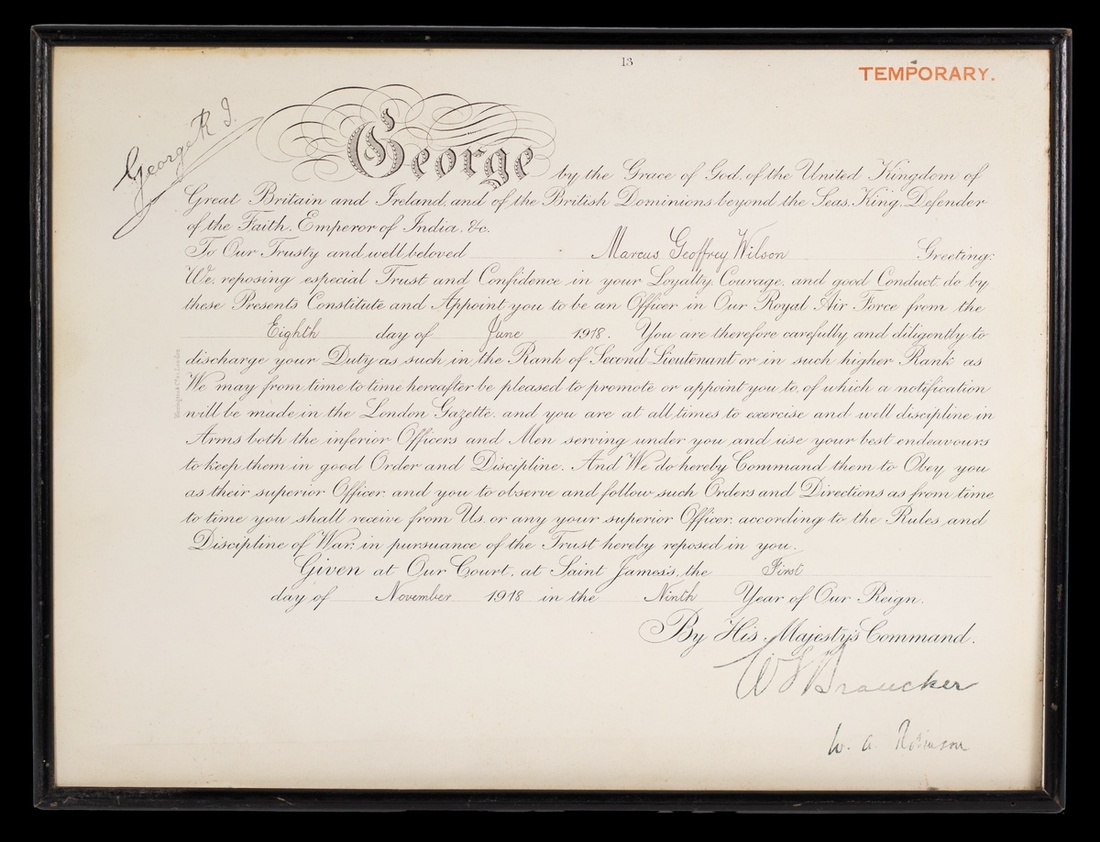 13
TEMPORARY.
George R I
George by the Grace of God, of the United Kingdom of
Great Britain and Ireland, and of the British Dominions beyond the Seas, King, Defender
of the Faith, Emperor of India, &c.
To Our Trusty and well beloved Marcus Geoffrey Wilson Greeting:
We, reposing especial Trust and Confidence in your Loyalty, Courage, and good Conduct, do by
these Presents Constitute and Appoint you to be an Officer in Our Royal Air Force from the
Eighth day of June 1918. You are therefore carefully and diligently to
discharge your Duty as such in the Rank of Second Lieutenant or in such higher Rank as
We may from time to time hereafter be pleased to promote or appoint you to, of which a notification
will be made in the London Gazette, and you are at all times to exercise and well discipline in
Arms both the inferior Officers and Men serving under you and use your best endeavours
to keep them in good Order and Discipline. And We do hereby Command them to Obey you
as their superior Officer and you to observe and follow such Orders and Directions as from time
to time you shall receive from Us, or any your superior Officer, according to the Rules and
Discipline of War, in pursuance of the Trust hereby reposed in you.
Given at Our Court, at Saint James's, the First
day of November 1918 in the Ninth Year of Our Reign.
By His Majesty's Command.
W. A. Robinson